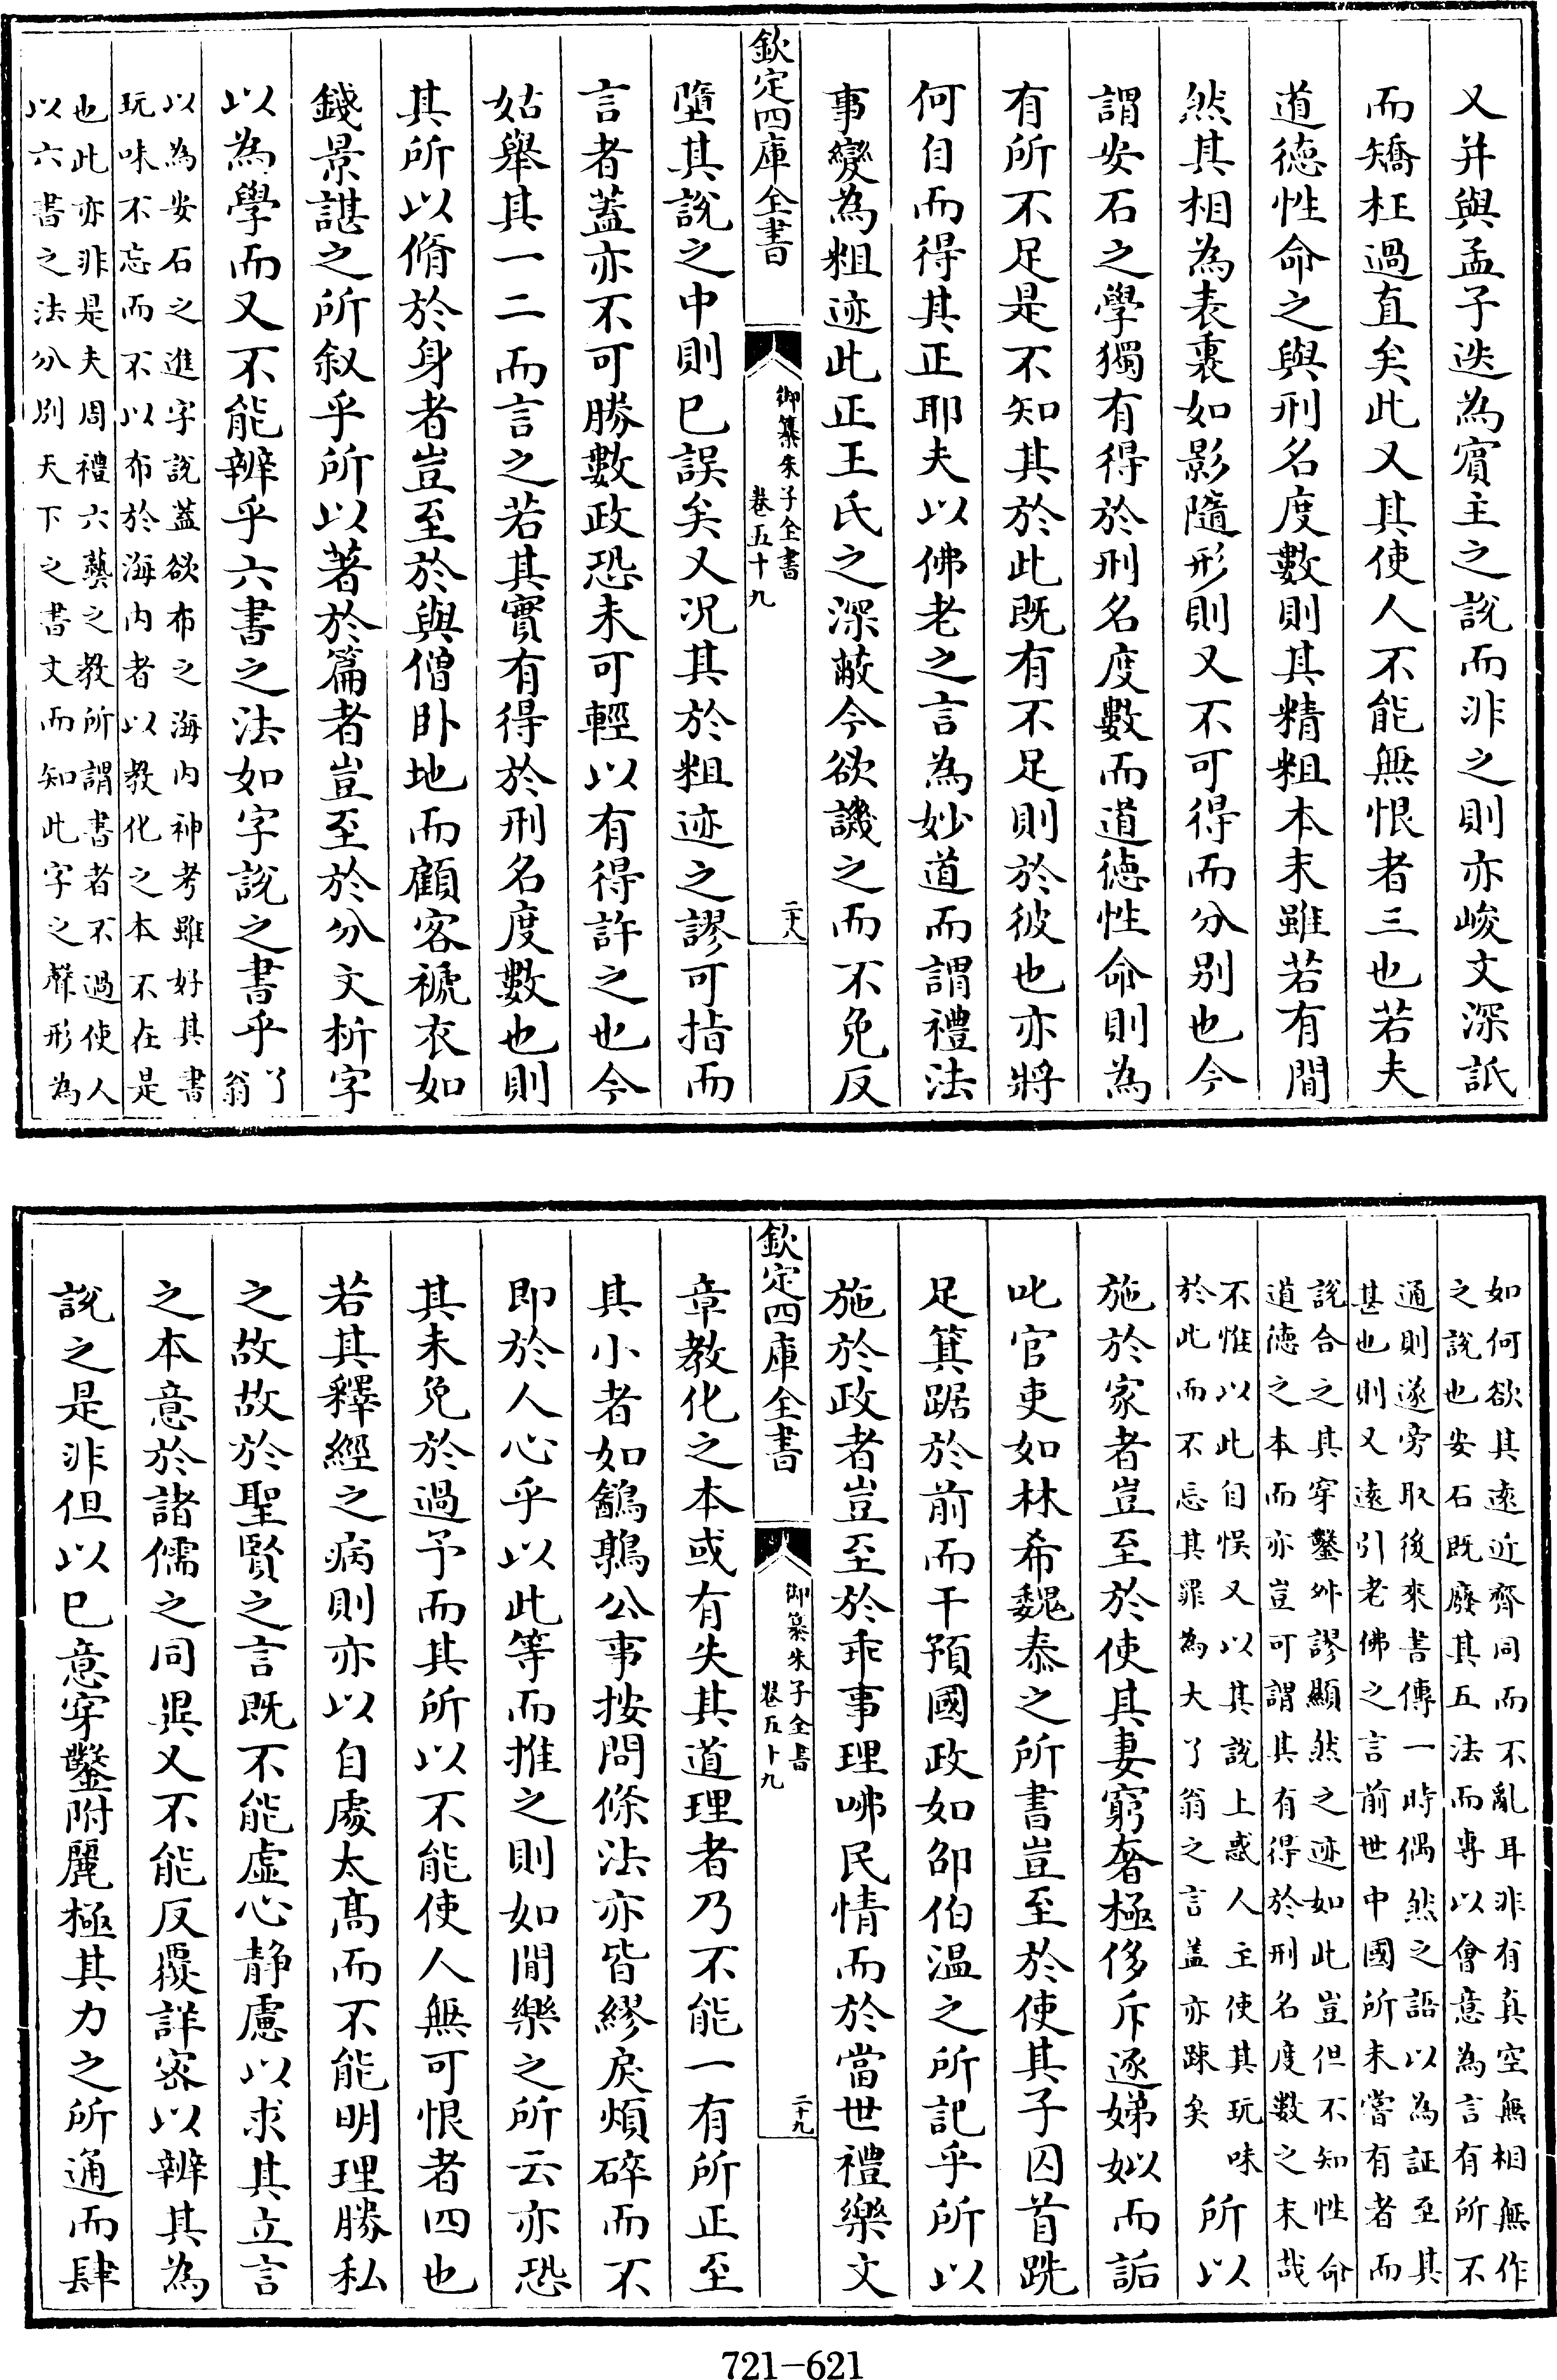 又并與孟子迭為賓主之說而非之則亦峻文深詆
而矯枉過直矣此又其使人不能無恨者三也若夫
道徳性命之與刑名度數則其精粗本末雖若有間
然其相為表裏如影隨形則又不可得而分別也今
謂安石之學獨有得於刑名度數而道徳性命則為
有所不足是不知其於此既有不足則於彼也亦將
何自而得其正耶夫以佛老之言為妙道而謂禮法
事變為粗迹此正王氏之深蔽今欲譏之而不免反
欽定四庫全書
御纂朱子全書
卷五十九
二十八
墮其說之中則已誤矣又况其於粗迹之謬可指而
言者蓋亦不可勝數政恐未可輕以有得許之也今
姑舉其一二而言之若其實有得於刑名度數也則
其所以脩於身者豈至於與僧卧地而顧客褫衣如
錢景諶之所叙乎所以著於篇者豈至於分文析字
以為學而又不能辨乎六書之法如字說之書乎
了
翁
以為安石之進字說蓋欲布之海内神考雖好其書
玩味不忘而不以布於海内者以教化之本不在是
也此亦非是夫周禮六藝之教所謂書者不過使人
以六書之法分別天下之書文而知此字之聲形為
如何欲其遠近齊同而不亂耳非有真空無相無作
之說也安石既廢其五法而専以會意為言有所不
通則遂旁取後來書傳一時偶然之語以為証至其
甚也則又遠引老佛之言前世中國所未嘗有者而
說合之其穿鑿舛謬顯然之迹如此豈但不知性命
道徳之本而亦豈可謂其有得於刑名度數之末哉
不惟以此自悞又以其說上惑人主使其玩味
於此而不忘其罪為大了翁之言盖亦踈矣
所以
施於家者豈至於使其妻窮奢極侈斥逐娣姒而詬
叱官吏如林希魏泰之所書豈至於使其子囚首跣
足箕踞於前而干預國政如邵伯温之所記乎所以
施於政者豈至於乖事理咈民情而於當世禮樂文
欽定四庫全書
御纂朱子全書
卷五十九
二十九
章教化之本或有失其道理者乃不能一有所正至
其小者如鶺鷯公事按問條法亦皆繆戾煩碎而不
即於人心乎以此等而推之則如間樂之所云亦恐
其未免於過予而其所以不能使人無可恨者四也
若其釋經之病則亦以自處太髙而不能明理勝私
之故故於聖賢之言既不能虛心静慮以求其立言
之本意於諸儒之同異又不能反覆詳宻以辨其為
說之是非但以已意穿鑿附麗極其力之所通而肆
721-621